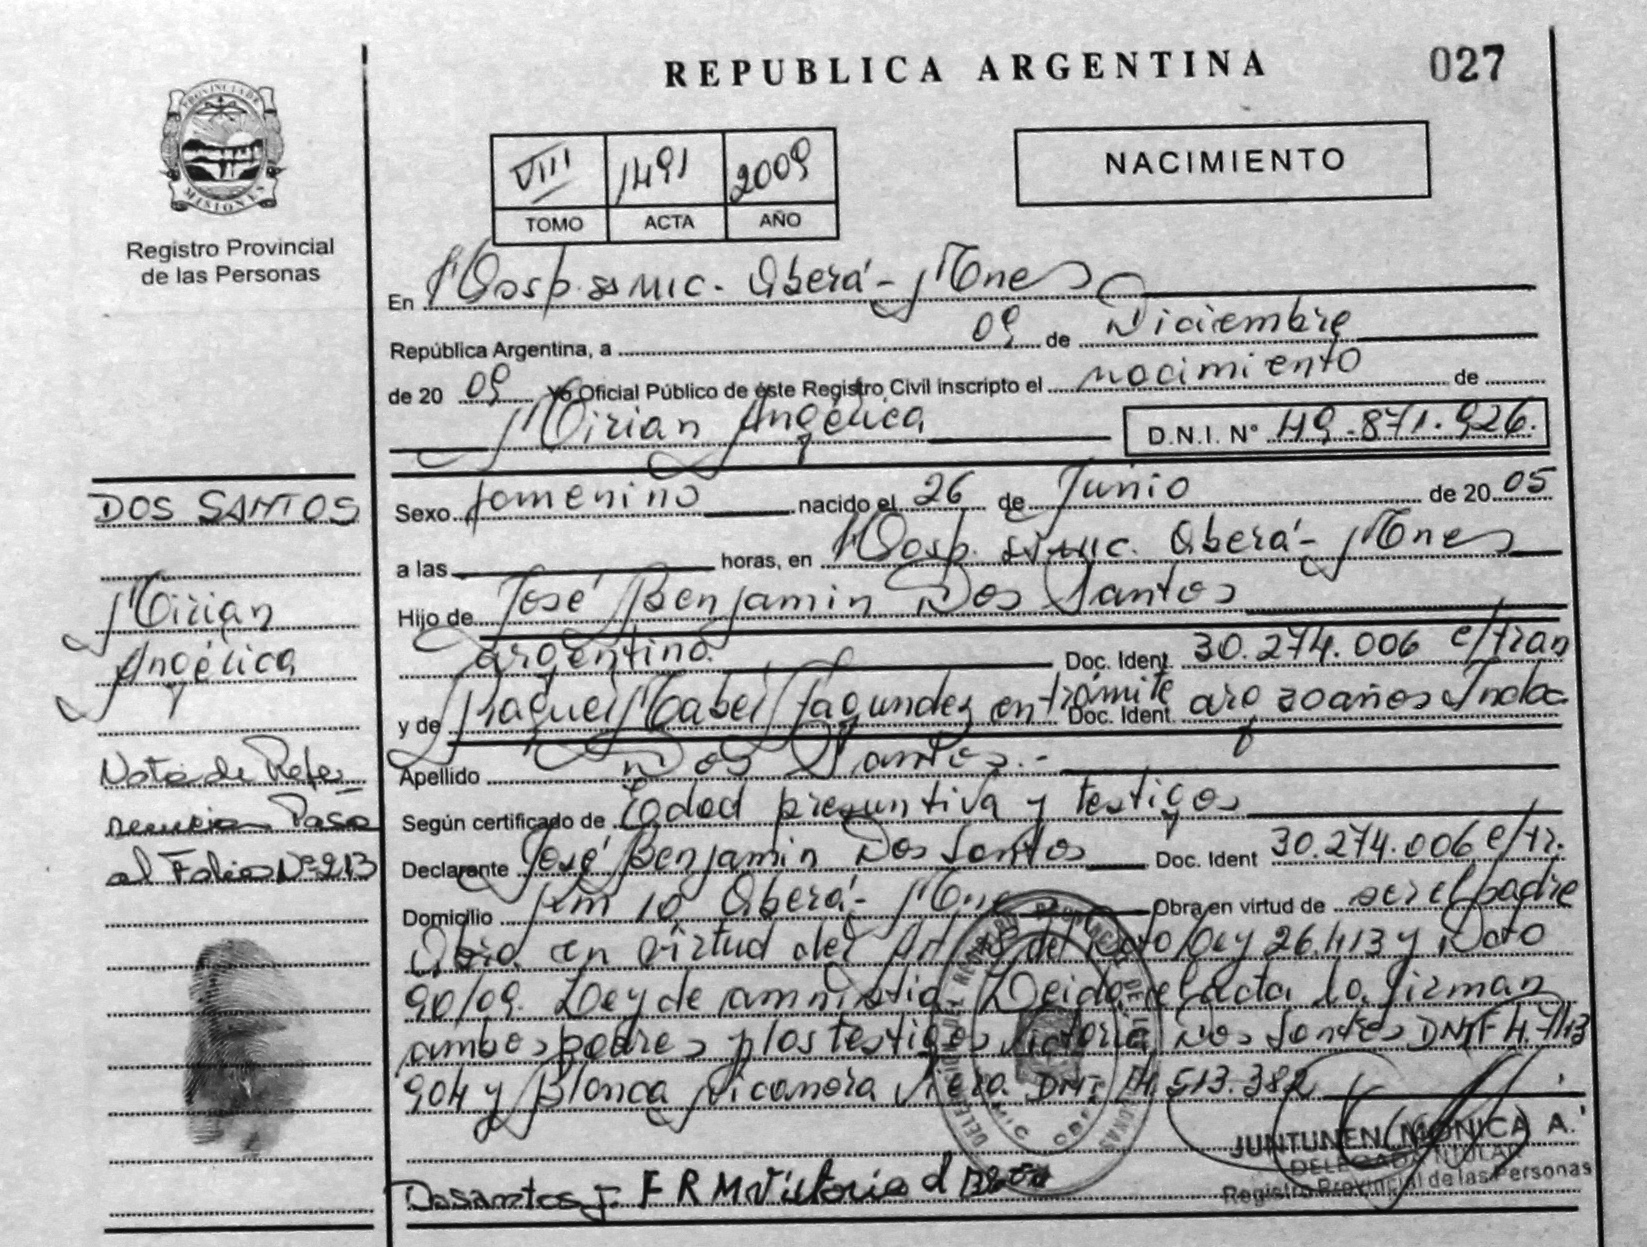 REPUBLICA ARGENTINA
027
PROVINCIA DE MISIONES
Registro Provincial
de las Personas
VIII 1491 2009
TOMO ACTA AÑO
NACIMIENTO
En Hosp. SSMIC. Oberá - Mnes
República Argentina, a 09 de Diciembre
de 20 09 Yo Oficial Público de éste Registro Civil inscripto el nacimiento de
Mirian Angélica D.N.I. N° 49.871.926.
DOS SANTOS
Mirian
Angélica
Nota de Refe
rencia Pasa
al Folio Nº 213
Sexo femenino nacido el 26 de Junio de 20 05
a las horas, en Hosp. SSMIC. Oberá - Mnes
Hijo de José Benjamin Dos Santos
argentino. Doc. Ident. 30.274.006 e/tram
y de Raquel Mabel Fagundez en trámite Doc. Ident. arg 20 años Indoc.
Apellido Dos Santos.-
Según certificado de Edad presuntiva y testigos
Declarante José Benjamin Dos Santos Doc. Ident 30.274.006 e/tr.
Domicilio Km 10 Oberá - Mnes Obra en virtud de ser el padre
Obra en virtud del Art. del Ley 26.413 y Dcto
90/09. Ley de amnistia. Leida el acta la firman
ambos padres y los testigos Victoria Dos Santos DNI F 4.713
904 y Blanca Nicanora Viera DNI 14.513.382
JUNTUNEN MONICA A.
DELEGADA TITULAR
Registro Provincial de las Personas
Dosantos J. F R M Victoria d